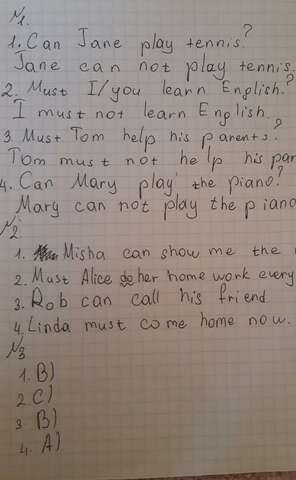 №1
1. Can Jane play tennis?
Jane can not play tennis.
2. Must I/you learn English?
I must not learn English.
3. Must Tom help his parents?
Tom must not help his par
4. Can Mary play the piano?
Mary can not play the piano
№2
1. Misha can show me the
2. Must Alice do her home work every
3. Rob can call his friend
4. Linda must come home now.
№3
1. B)
2 C)
3 B)
4. A)